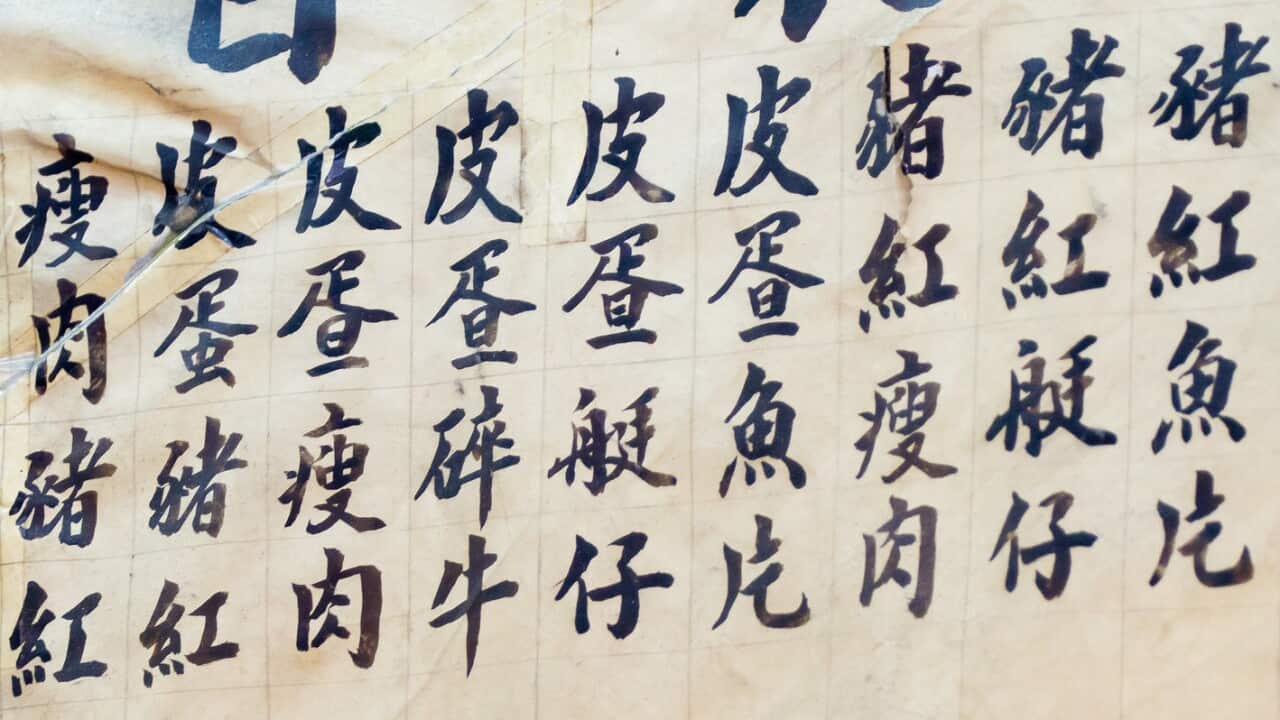 豬紅魚片
豬紅艇仔
豬紅瘦肉
皮疍魚片
皮疍艇仔
皮疍碎牛
皮疍瘦肉
皮蛋豬紅
瘦肉豬紅